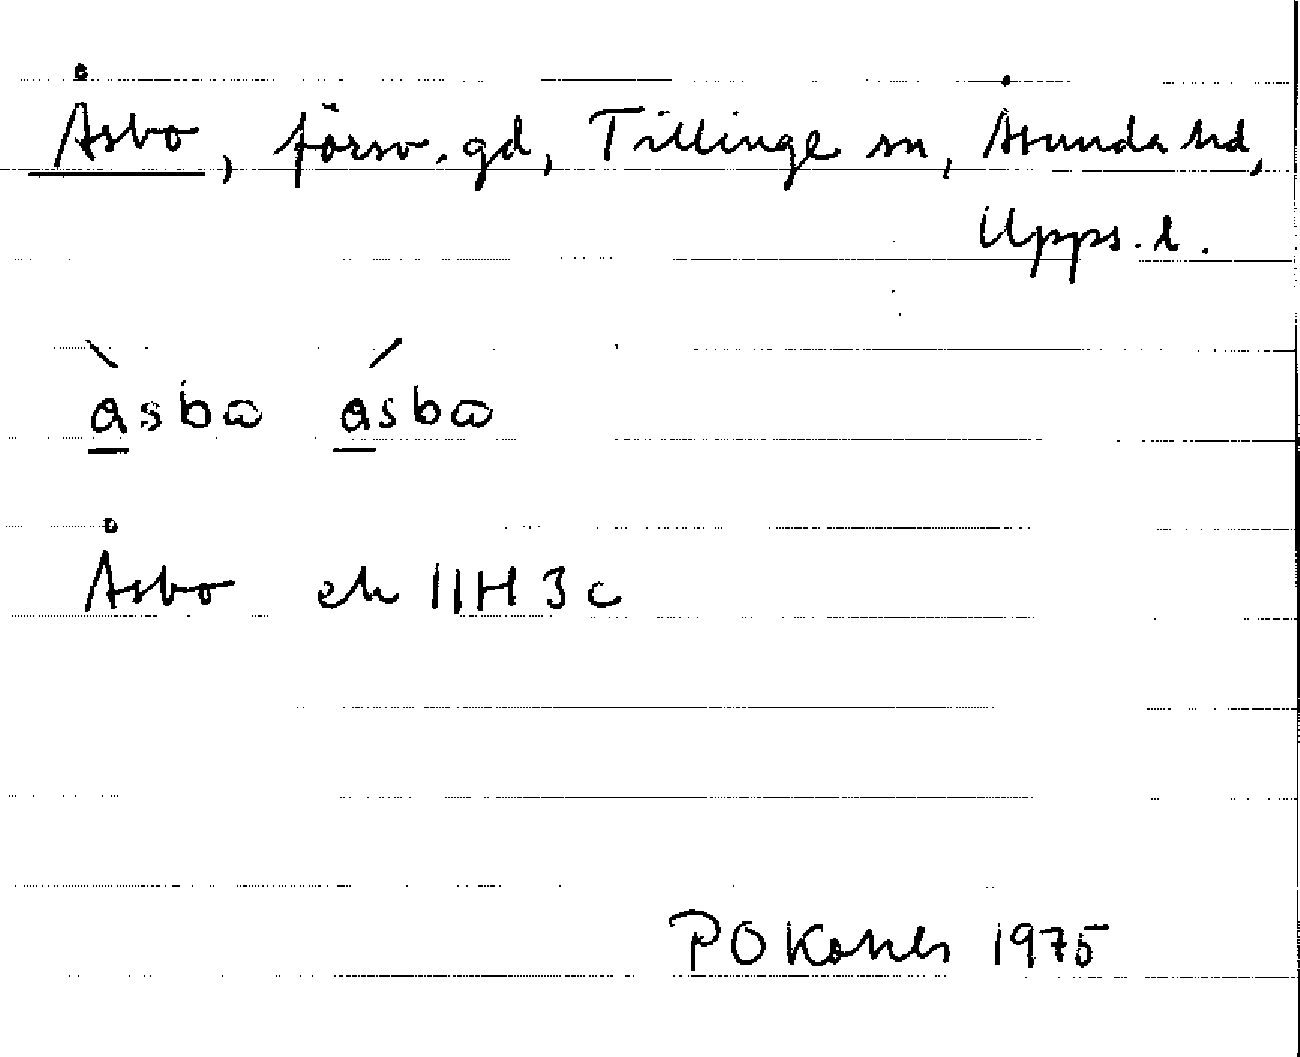 Åsbo, försv. gd, Tillinge sn, Åsunda hd,
Upps. l.
àsbω ásbω
Åsbo ek 11H 3c
P O 1975